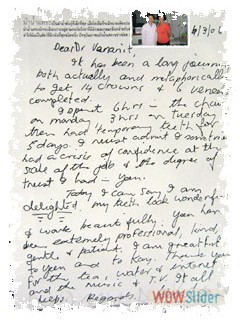 6/3/06
Dear Dr Vananit,
It has been a long journey
both actually and metaphorically
to get 14 crowns & 6 veneers
completed.
I spent 6hrs in the chair
on monday 3hrs on Tuesday
then had temporary teeth for
5 days. I must admit I sometimes
had a crisis of confidence at the
scale of the job & the degree of
trust I had in you.
Today I can say I am
delighted, my teeth look wonderful
& work beautifully. You have
been extemely professional, kind,
gentle & patient. I am greatful
to you and to Kay. Thank you
for the tea, water & internet
and the music & T.V. It all
helps. Regards
WOWSlider